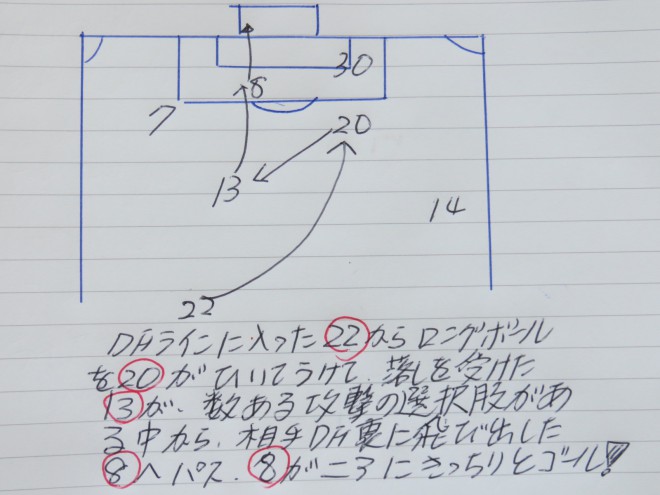 30
8
7
20
13
14
22
DHラインに入った22からロングボール
を20がひいてうけて、落しを受けた
13が、数ある攻撃の選択肢があ
る中から、相手DH裏に飛び出した
8へパス、8がニアにきっちりとゴール!